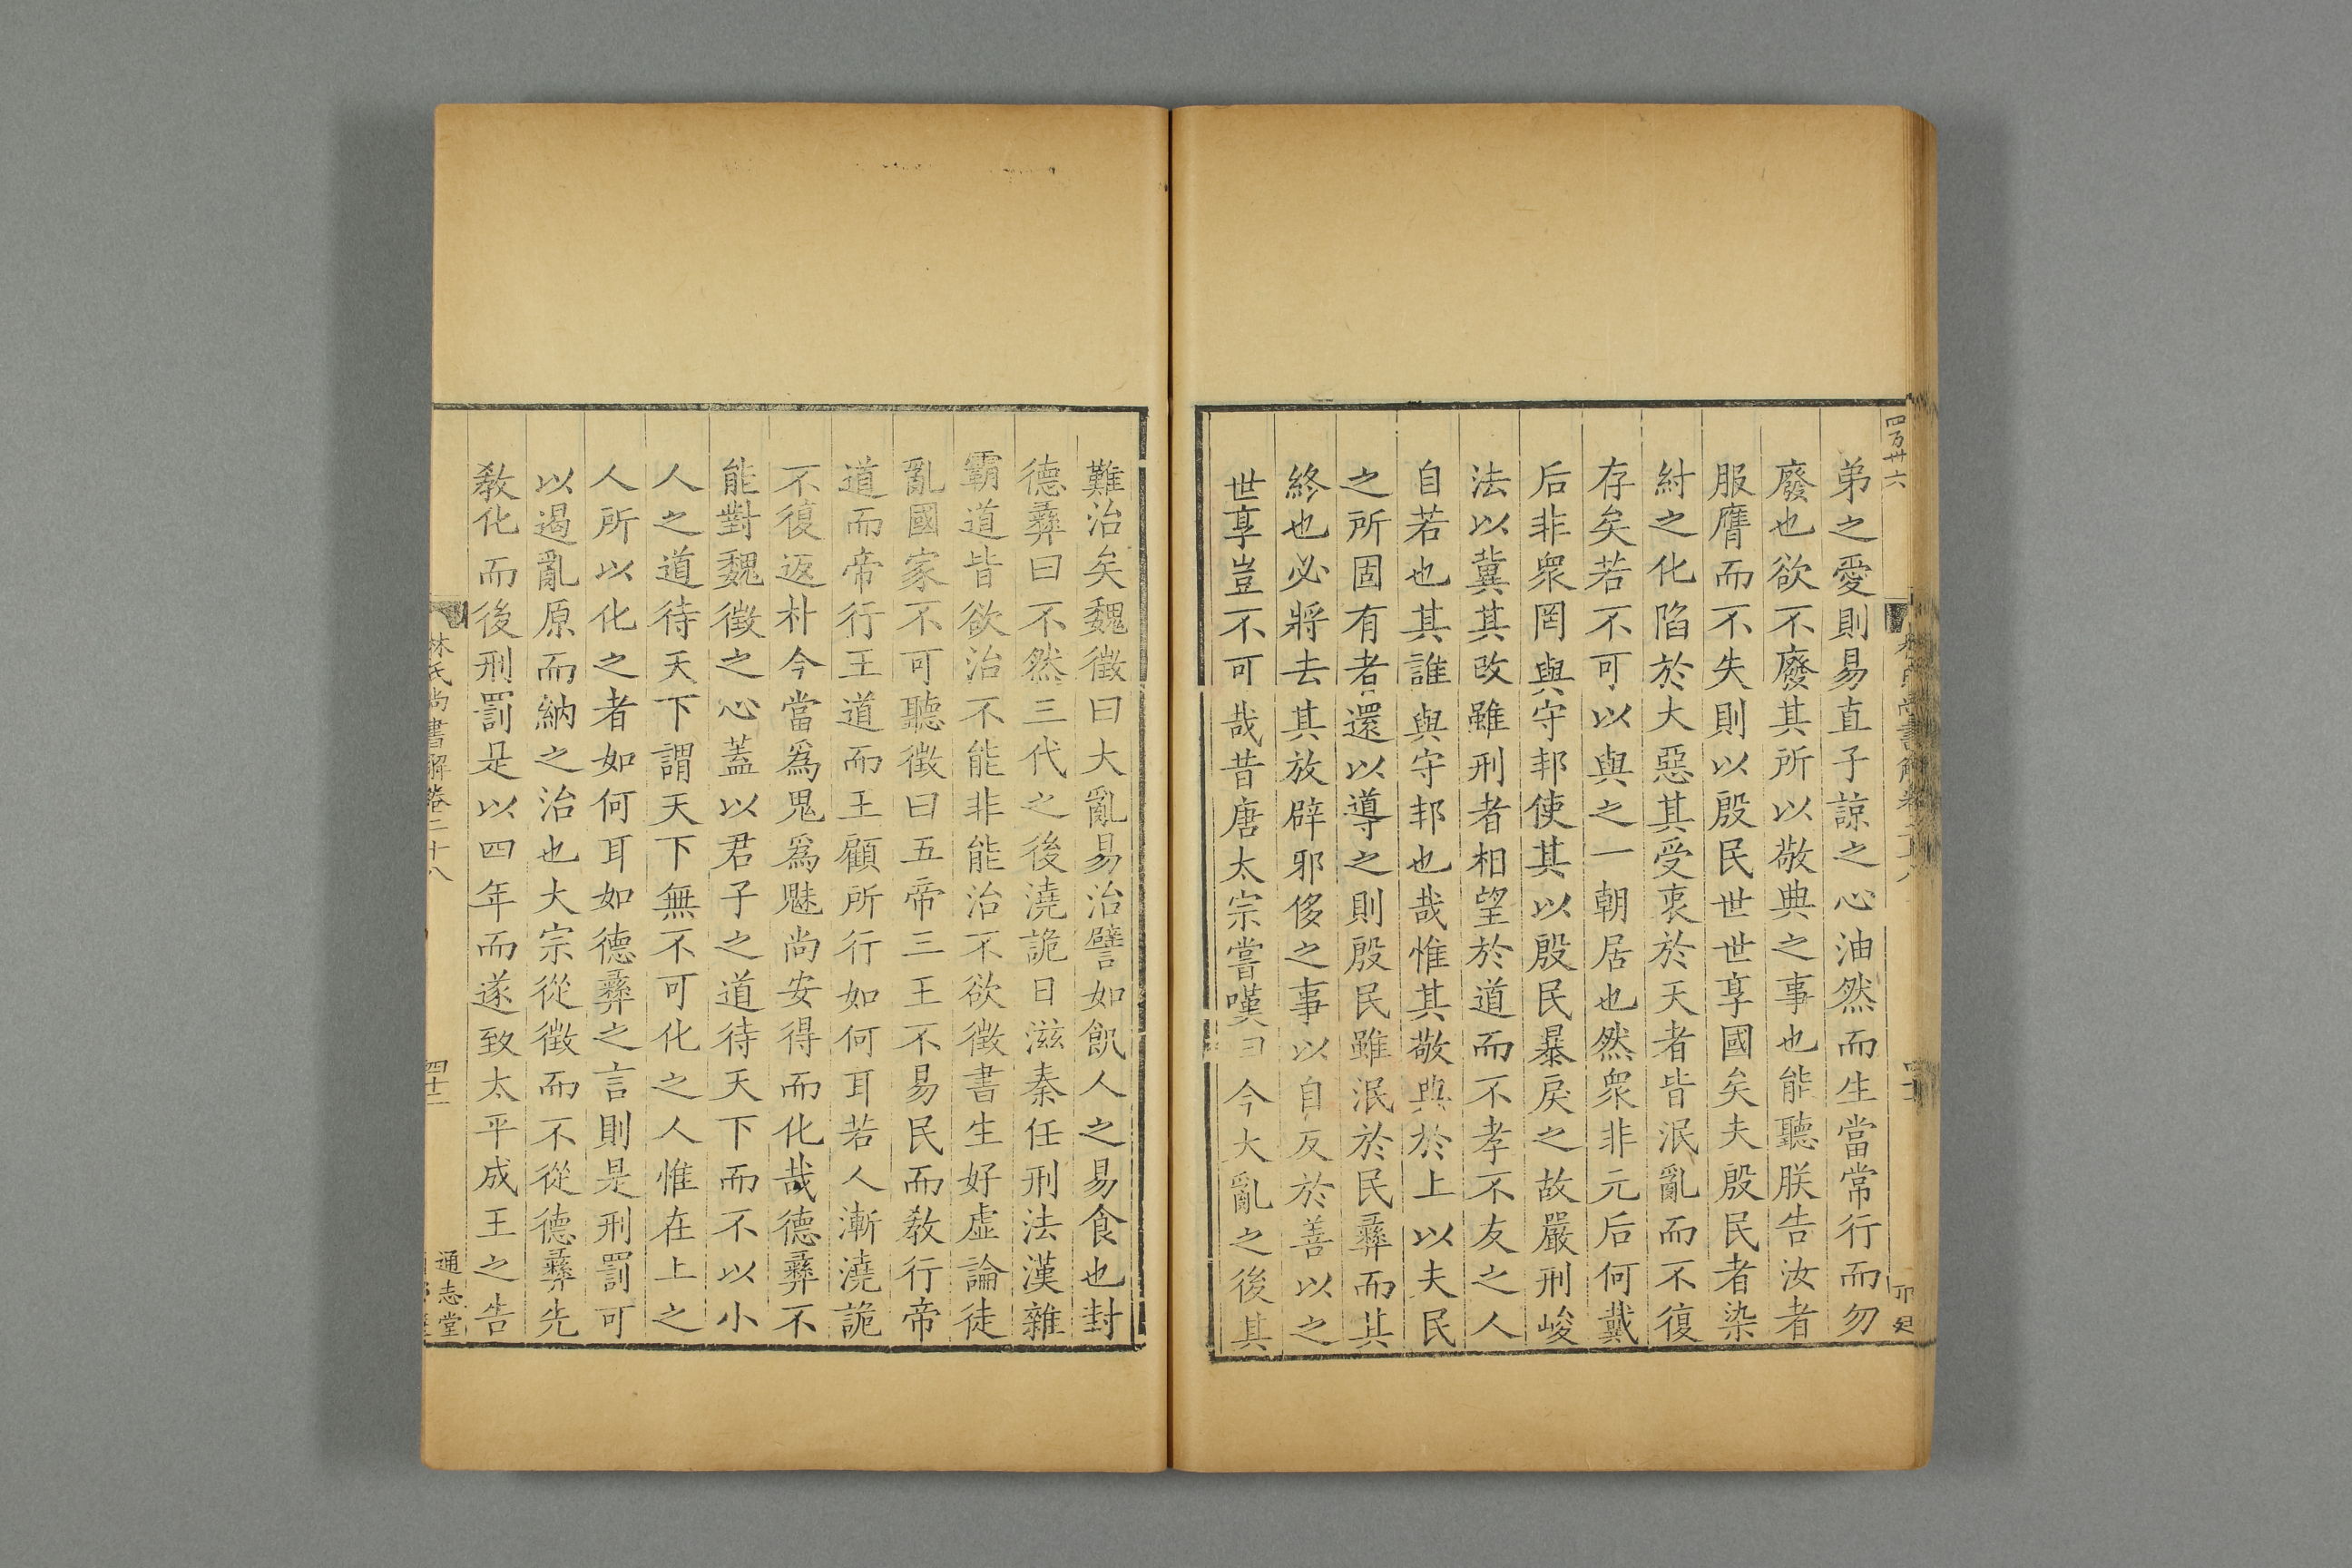 四万卅六
弟之愛則易直子諒之心油然而生當常行而勿
廢也欲不廢其所以敬典之事也能聽朕告汝者
服膺而不失則以殷民世世享國矣夫殷民者染
紂之化陷於大惡其受衷於天者皆泯亂而不復
存矣若不可以與之一朝居也然衆非元后何戴
后非衆罔與守邦使其以殷民暴戾之故嚴刑峻
法以冀其改雖刑者相望於道而不孝不友之人
自若也其誰與守邦也哉惟其敬典於上以夫民
之所固有者還以導之則殷民雖泯於民彝而其
終也必將去其放辟邪侈之事以自反於善以之
世享豈不可哉昔唐太宗嘗嘆曰今大亂之後其
難治矣魏徵曰大亂易治譬如飢人之易食也封
德彝曰不然三代之後澆詭日滋秦任刑法漢雜
霸道皆欲治不能非能治不欲徵書生好虛論徒
亂國家不可聽徵曰五帝三王不易民而教行帝
道而帝行王道而王顧所行如何耳若人漸澆詭
不復返朴今當爲鬼爲魅尚安得而化哉德彝不
能對魏徵之心蓋以君子之道待天下而不以小
人之道待天下謂天下無不可化之人惟在上之
人所以化之者如何耳如德彝之言則是刑罰可
以遏亂原而納之治也大宗從徵而不從德彝先
教化而後刑罰是以四年而遂致太平成王之告
林氏尚書解卷二十八
四十二
通志堂